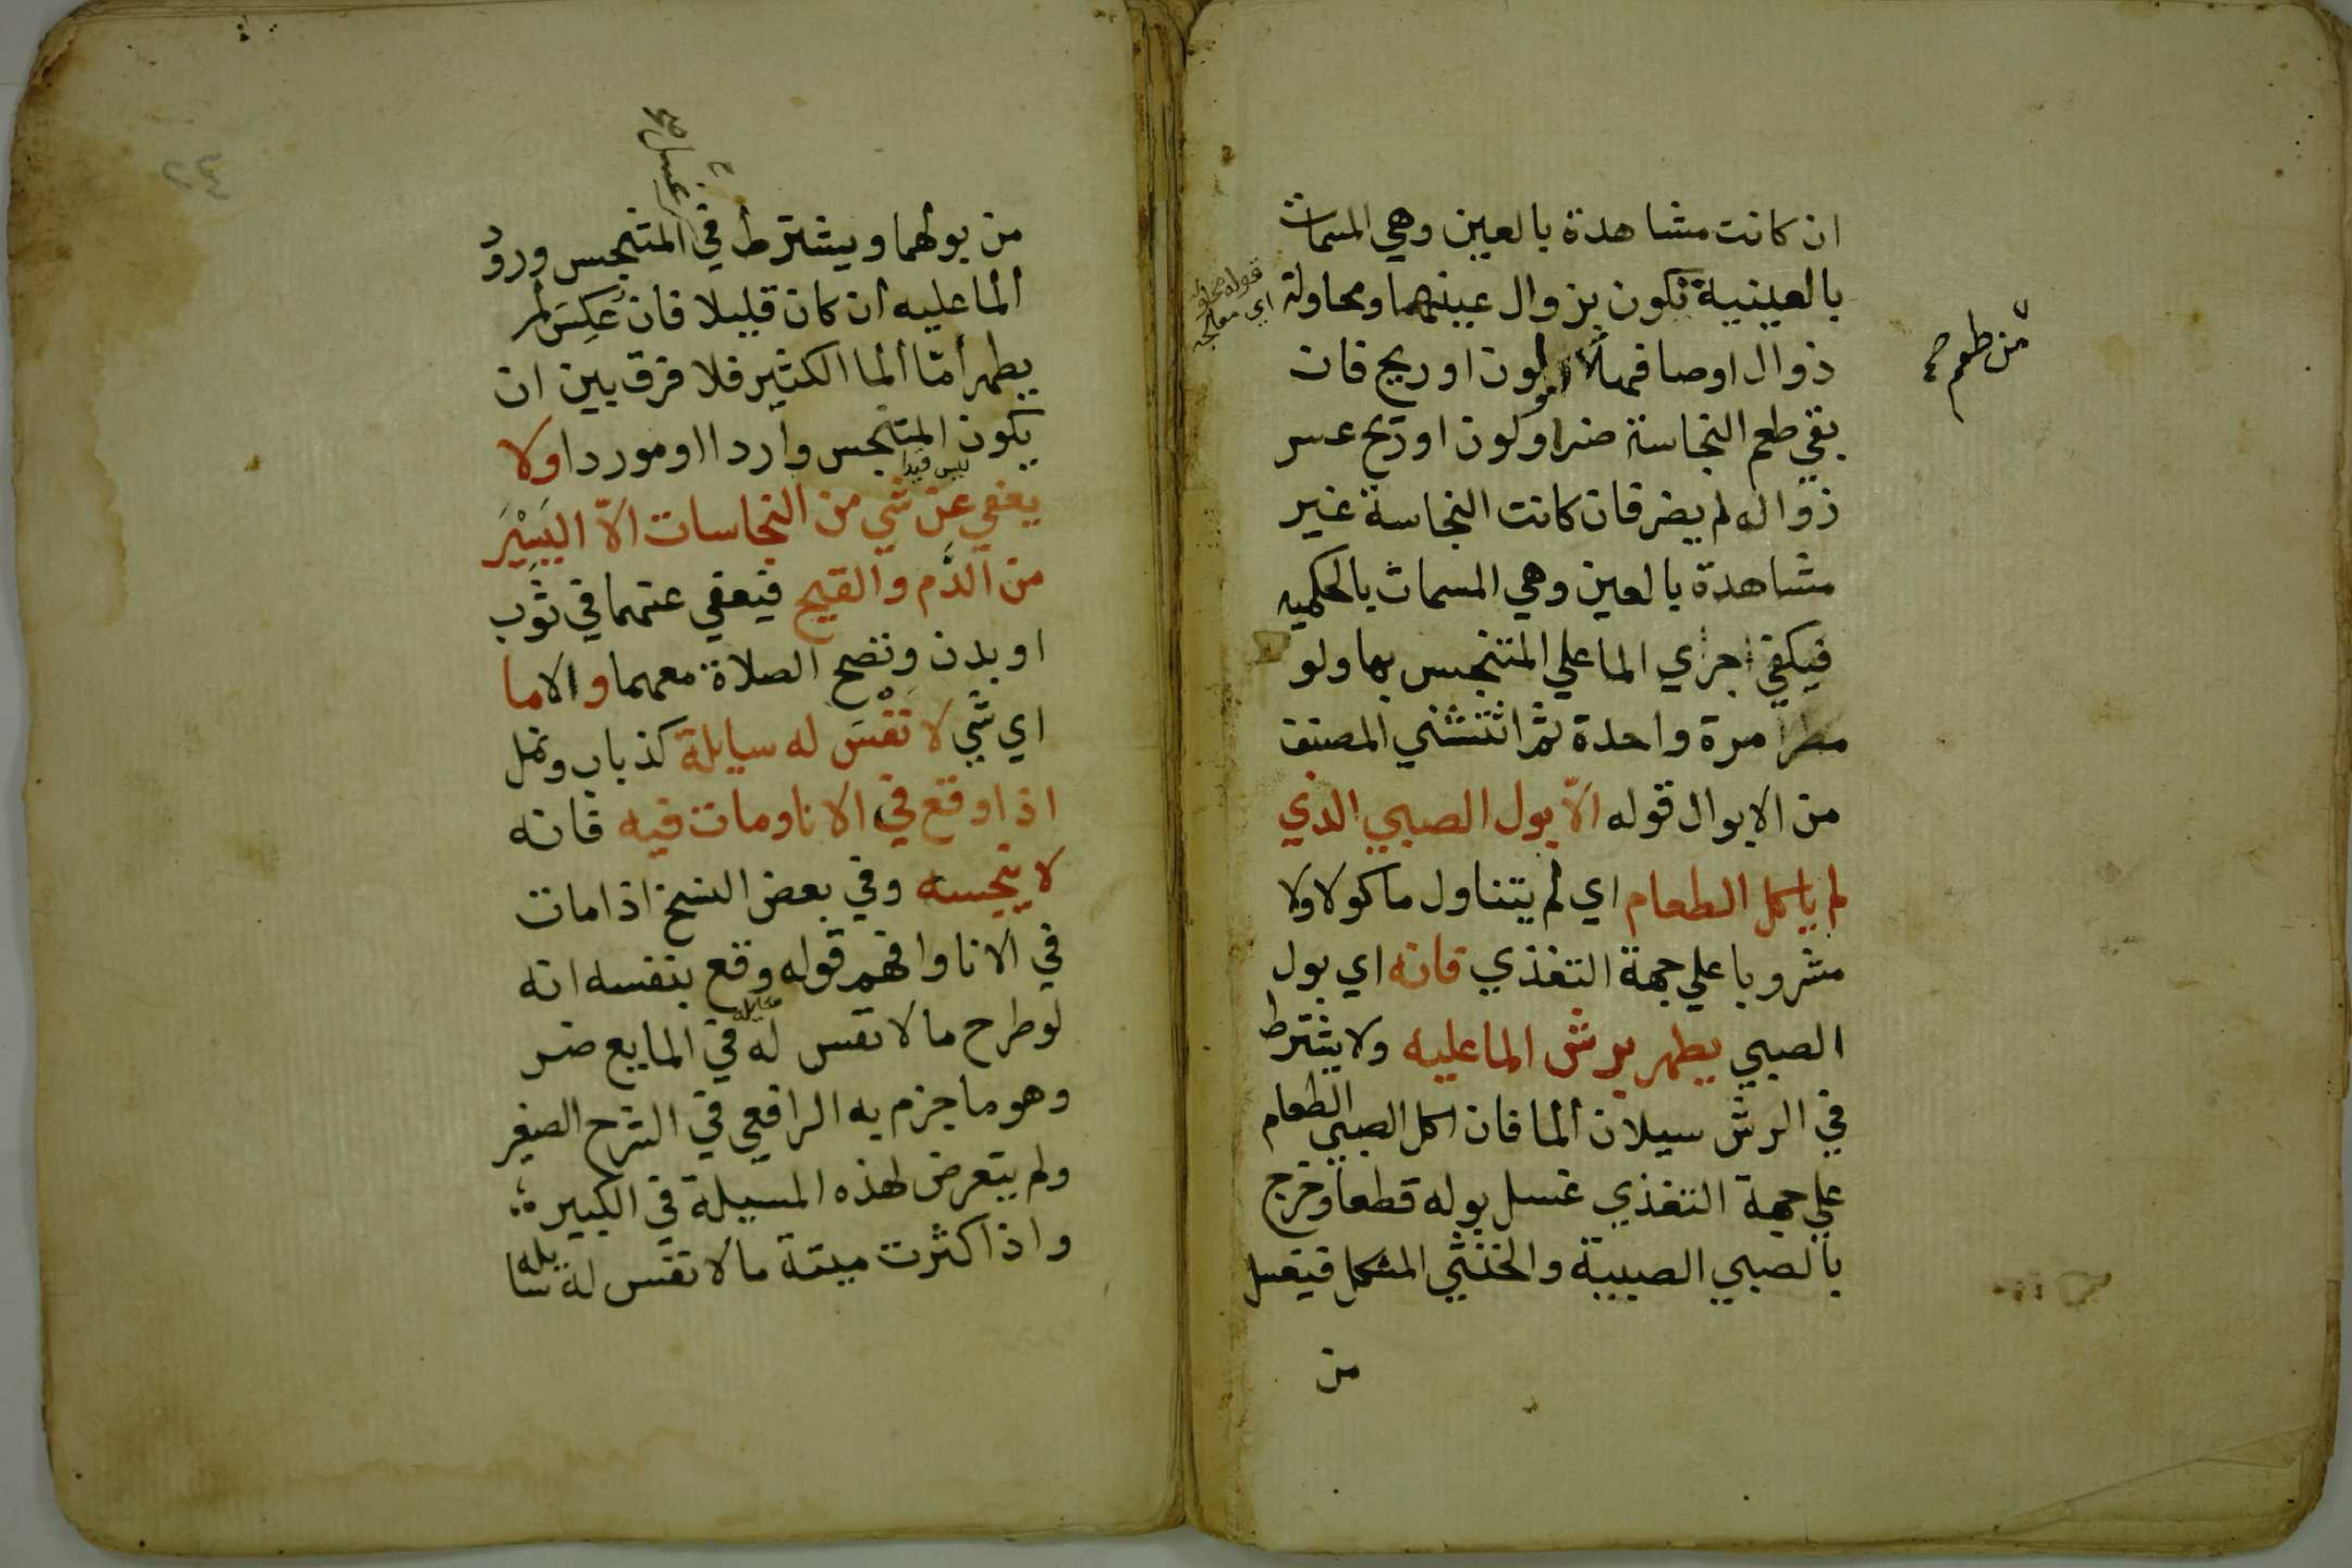 ان كانت مشاهدة بالعين وهي المسمات
بالعينية تكون بزوال عينها ومحاولة
زوال اوصافها لون او ريح فان
بقي طعم النجاسة ضر او لون او ريح عسر
زواله لم يضر فان كانت النجاسة غير
مشاهدة بالعين وهي المسمات بالحكميه
فيكفي اجراي الما علي المتنجس بها ولو
مطرا مرة واحدة ثم استثني المصنف
من الابوال قوله الا بول الصبي الذي
لم ياكل الطعام اي لم يتناول ماكولا ولا
مشروبا علي جهة التغذي فانه اي بول
الصبي يطهر برش الما عليه ولا يشترط
في الرش سيلان الما فان اكل الصبي الطعام
علي جهة التغذي غسل بوله قطعا وخرج
بالصبي الصبية والخنثي المشكل فيغسل
من
من طعم صح
قوله محاولة
اي معالجه
من بولهما ويشترط في المتنجس ورود
الما عليه ان كان قليلا فان عكس لم
يطهر أمّا الما الكثير فلا فرق بين ان
يكون المتنجس واردا او مورودا ولا
يعفي عن شي من النجاسات الاّ اليسير
من الدَّم والقيح فيعفي عنهما في ثوب
او بدن وتصح الصلاة معهما والا ما
اي شي لا نفس له سايلة كذباب ونمل
اذا وقع في الانا ومات فيه فانه
لا ينجسه وفي بعض النسخ اذا مات
في الانا وافهم قوله وقع بنفسه انه
لو طرح ما لا نفس له سايله في المايع ضر
وهو ما جزم به الرافعي في الشرح الصغير
ولم يتعرض لهذه المسيلة في الكبير
واذا كثرت ميتة ما لا نفس له سايله
غسل صح
ليس قيدا
٢٤